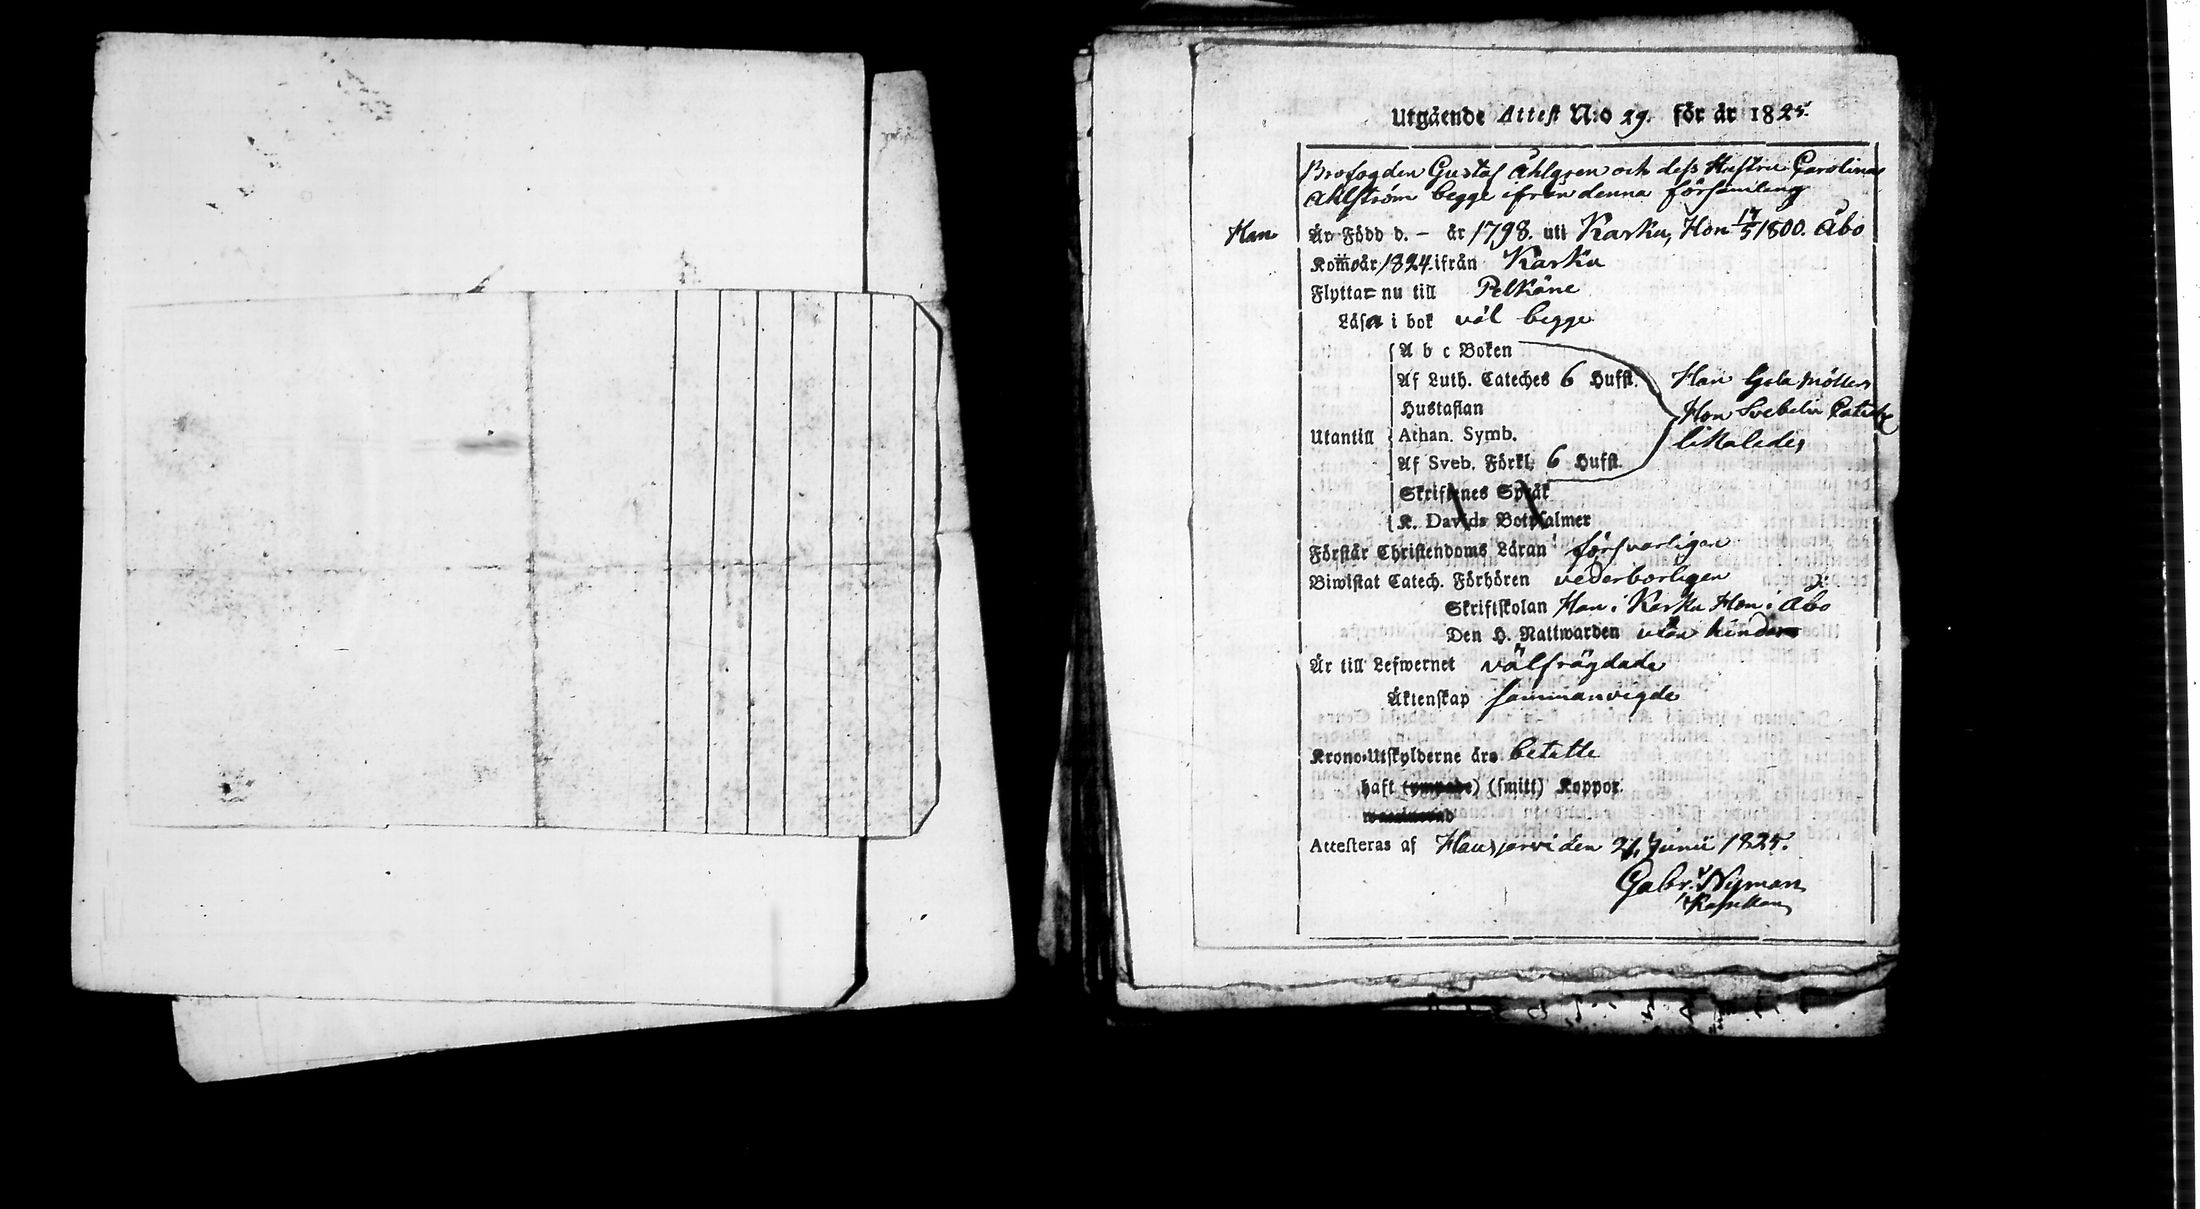 Utgående Attest N:o 29. för år 1825.
Brofogden Gustaf Åhlgren och dess Hustru Carolina
Ahlström begge ifrån denna församling
Han Är Född d. – år 1798. uti Karku, Hon 17/5 1800. Åbo
Kom år 1824. ifrån Karku
Flytta= nu till Pelkäne
Läsa i bok väl begge
A b c Boken
Af Luth. Cateches 6 Hufst. Han hela Möllers
Hustaflan Hon Svebelii Cateches
Utantill Athan. Symb. likaledes
Af Sveb. Förkl. 6 Hufst.
Skriftenes Språk
K. Davids Botpsalmer
Förstår Christendoms Läran försvarligen
Biwistat Catech. Förhören vederborligen
Skriftskolan Han i Karku Hon i Åbo
Den H. Nattwarden utan hinder
Är till Lefwernet välfrägdade
Äktenskap sammanvigde
Krono-Utskylderne äro betalte
haft (smitt) Koppor.
Attesteras af Hausjärvi den 21 Junii 1825.
Gabr. Nyman
Kapellan